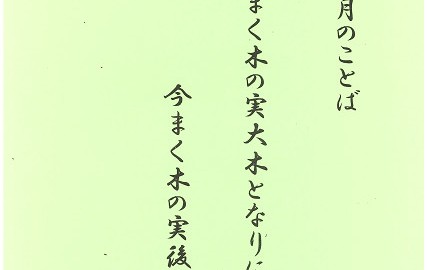 月のことば
まく木の実大木となりに
今まく木の実後